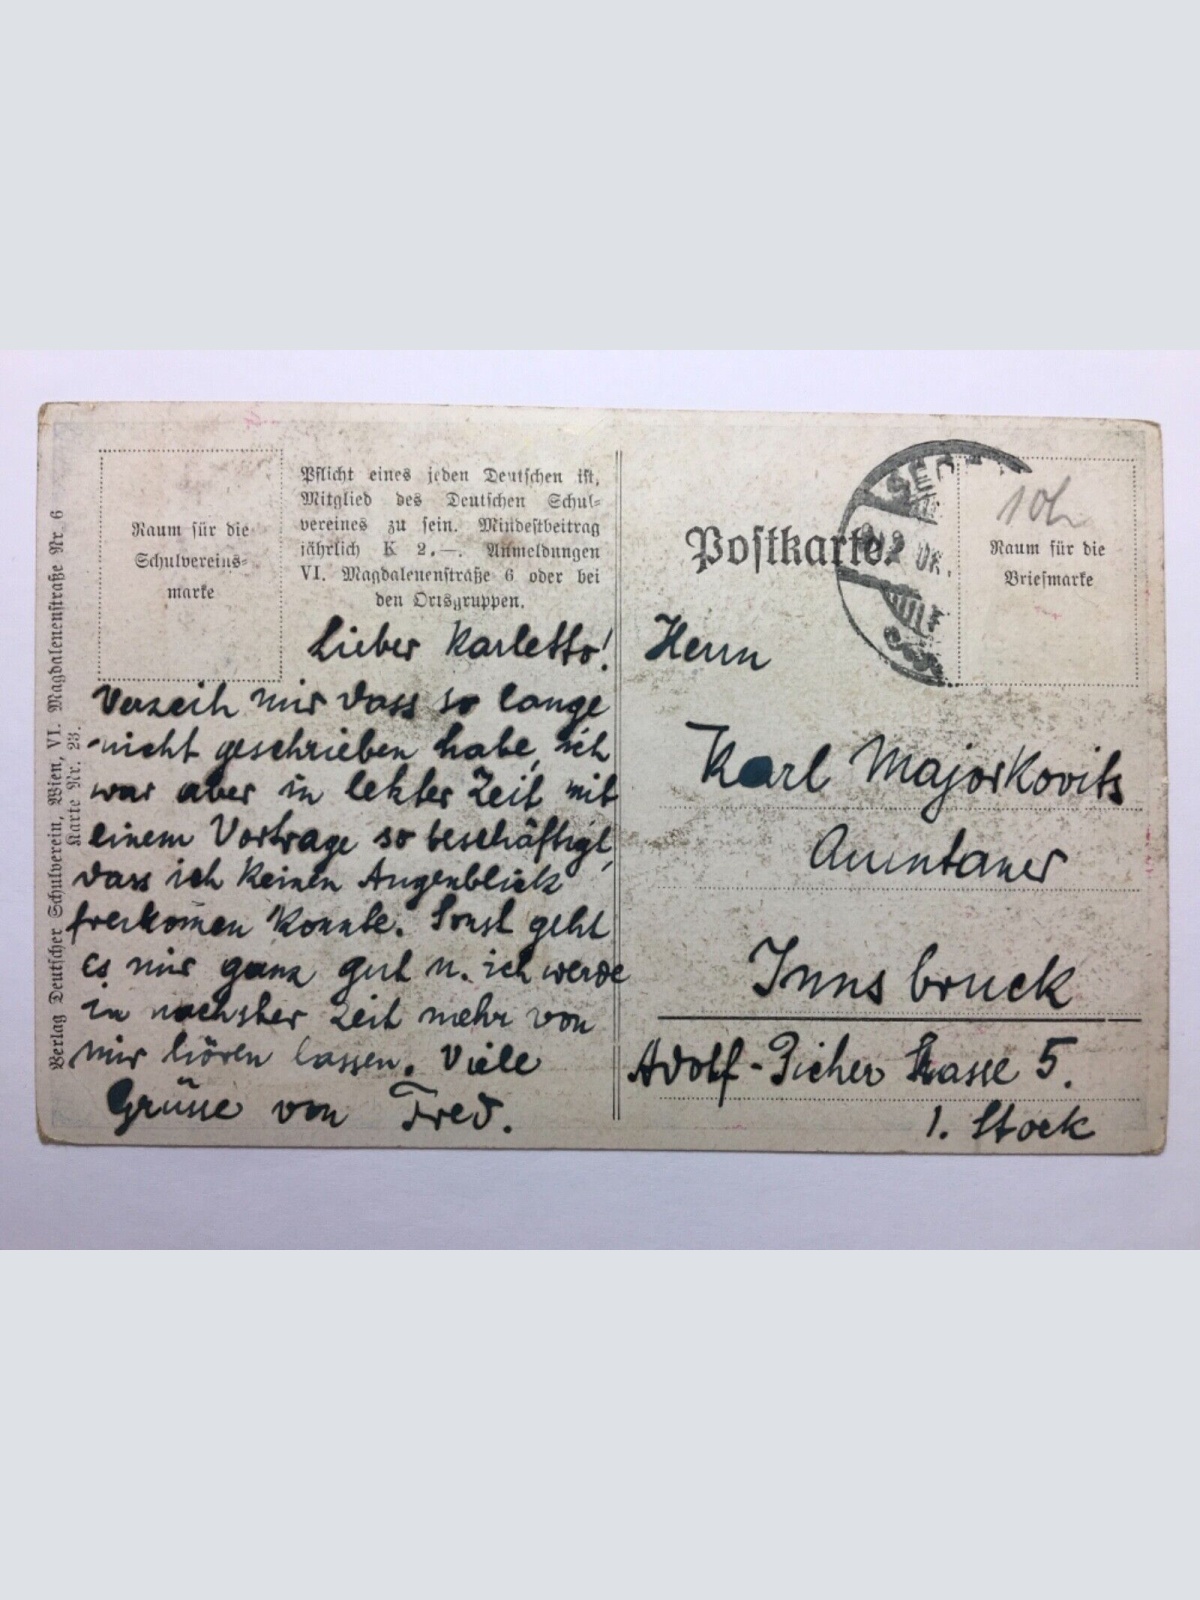 Verlag Deutscher Schulverein, Wien, VI. Magdalenenstraße Nr. 6
Karte Nr. 23.
Raum für die
Schulvereins-
marke
Pflicht eines jeden Deutschen ist,
Mitglied des Deutschen Schul-
vereines zu sein. Mindestbeitrag
jährlich K 2.—. Anmeldungen
VI. Magdalenenstraße 6 oder bei
den Ortsgruppen.
Lieber Karletto!
Verzeih mir dass so lange
nicht geschrieben habe, ich
war aber in letzter Zeit mit
einem Vortrage so beschäftigt,
dass ich keinen Augenblick
freikomen konnte. Sonst geht
es mir ganz gut u. ich werde
in nachster Zeit mehr von
mir hören lassen. Viele
Grüsse von Fred.
Postkarte.
10h
Raum für die
Briefmarke
Herrn
Karl Majorkovits
Innsbruck
Adolf-Picher Strasse 5.
1. Stock